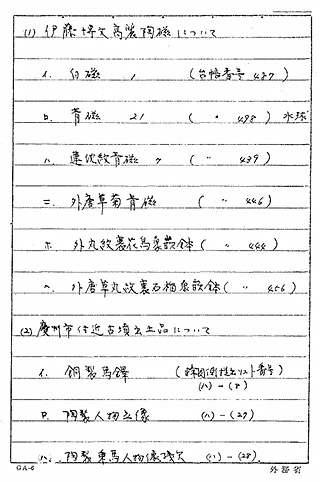 (1) 伊藤博文高麗陶磁について
イ. 白磁 1 (台帳番号 487)
ロ. 青磁 21 ( 〃 498) 水球
ハ. 蓮花紋青磁 7 ( 〃 439)
ニ. 外唐草菊青磁 ( 〃 446)
ホ. 外丸紋裏花鳥象嵌鉢 ( 〃 444)
ヘ. 外唐草丸紋裏石榴象嵌鉢 ( 〃 456)
(2) 慶州市付近古墳出土品について
イ. 銅製馬鐸 (韓国側提出リスト番号)
(八)-(8)
ロ. 陶製人物立像 (八)-(27)
ハ. 陶製乗馬人物像残欠 (八)-(28).
GA-6 外務省